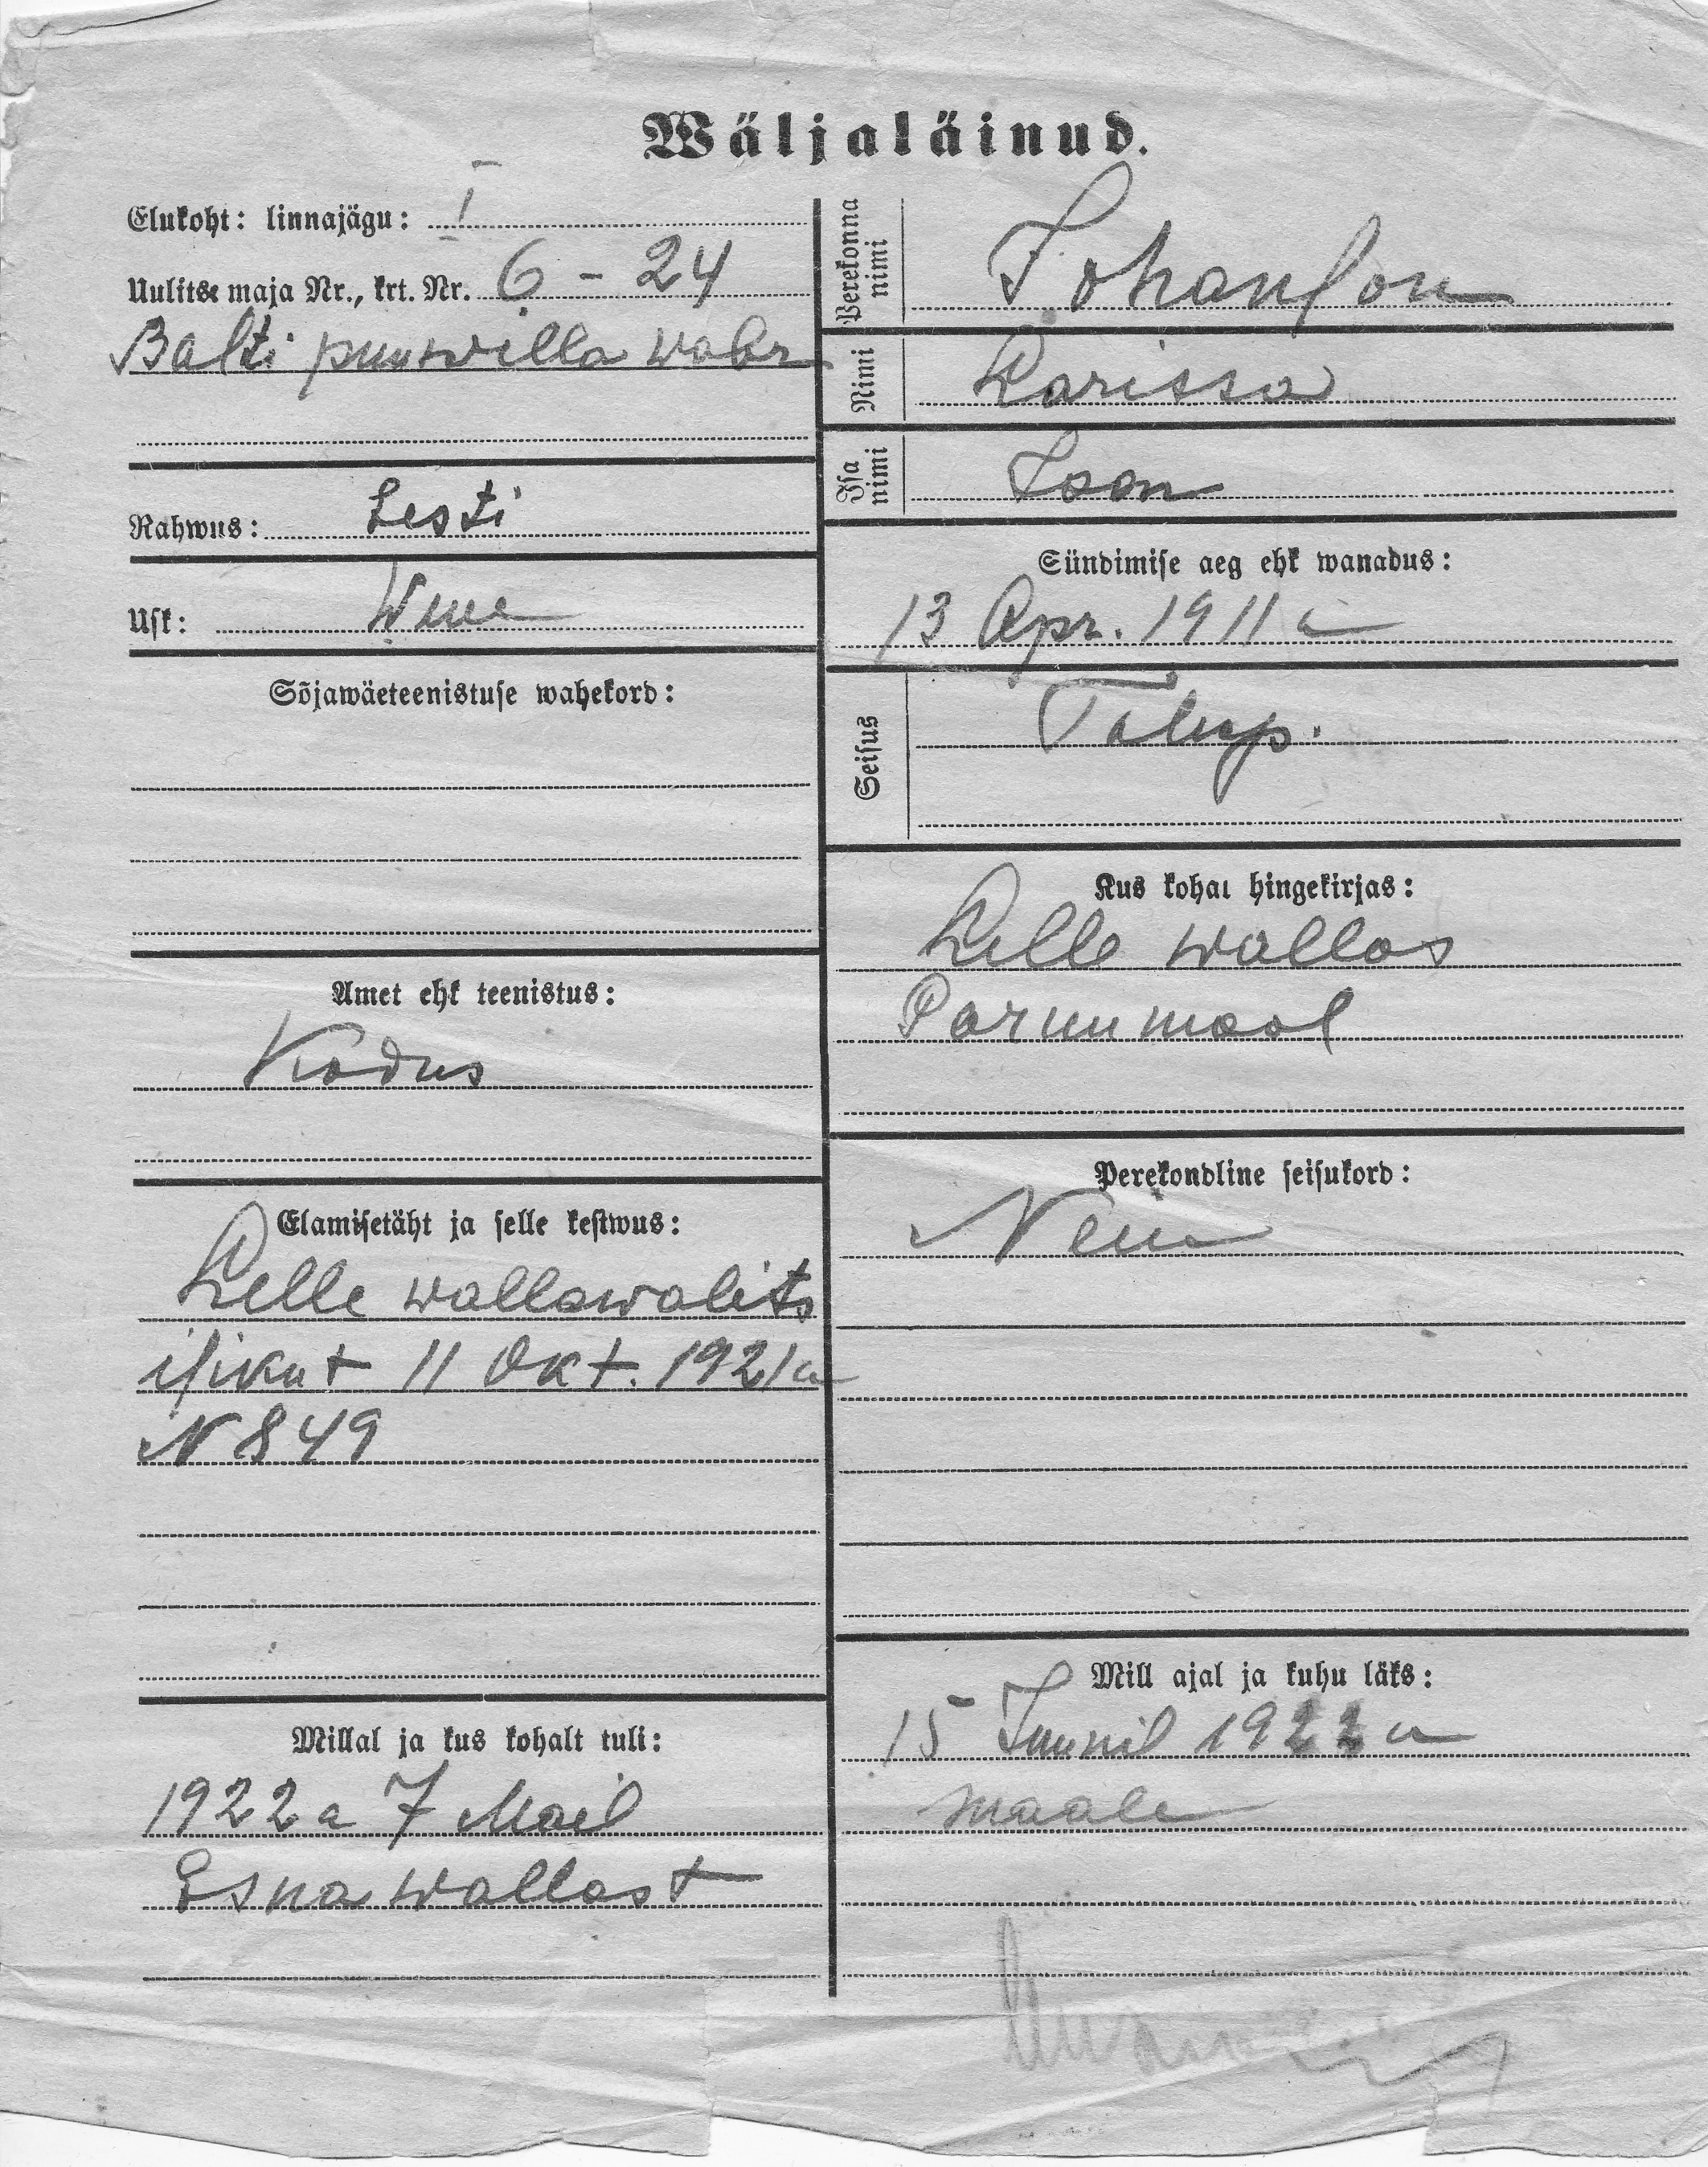 Wäljaläinud.
Elukoht: linnajägu: I
Uulitse maja Nr., krt. Nr. 6 - 24
Balti puuwilla wabr
Rahwus: Eesti
Usk: Wene
Sõjawäeteenistuse wahekord:
Amet ehk teenistus:
Kodus
Elamisetäht ja selle kestwus:
Lelle wallawalits
isikut 11 Okt. 1921 a
N 849
Millal ja kus kohalt tuli:
1922 a 7 Mail
Esna wallast
Perekonna nimi Johanson
Nimi Larissa
Isa nimi Jaan
Sündimise aeg ehk wanadus:
13 Apr. 1911 a
Seisus Talup.
Kus kohal hingekirjas:
Lelle wallas
Parnumaal
Perekondline seisukord:
Neiu
Mill ajal ja kuhu läks:
15 Juunil 1922 a
maale